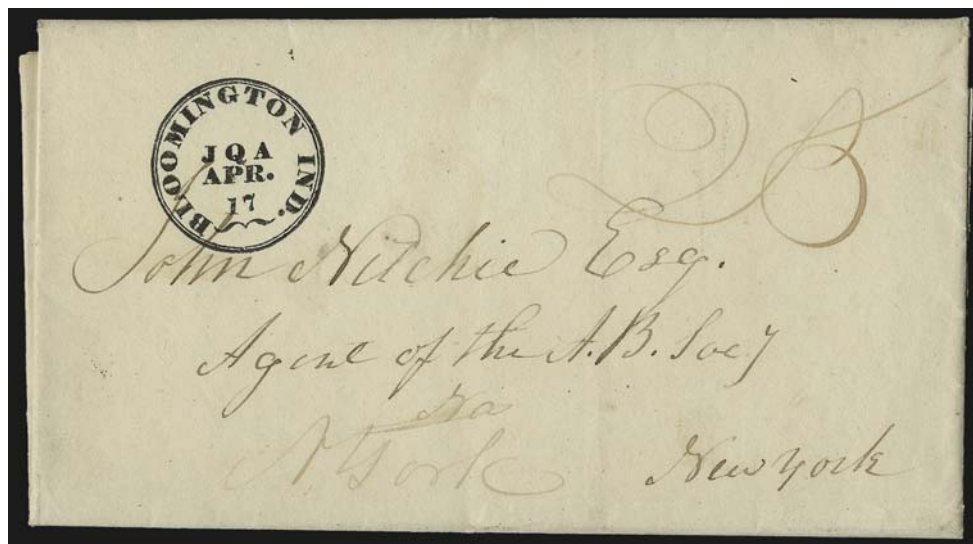 BLOOMINGTON IND.
JQA
APR.
17
25
John Nitchie Esq.
Agent of the A.B. Socy
No
N York
New york